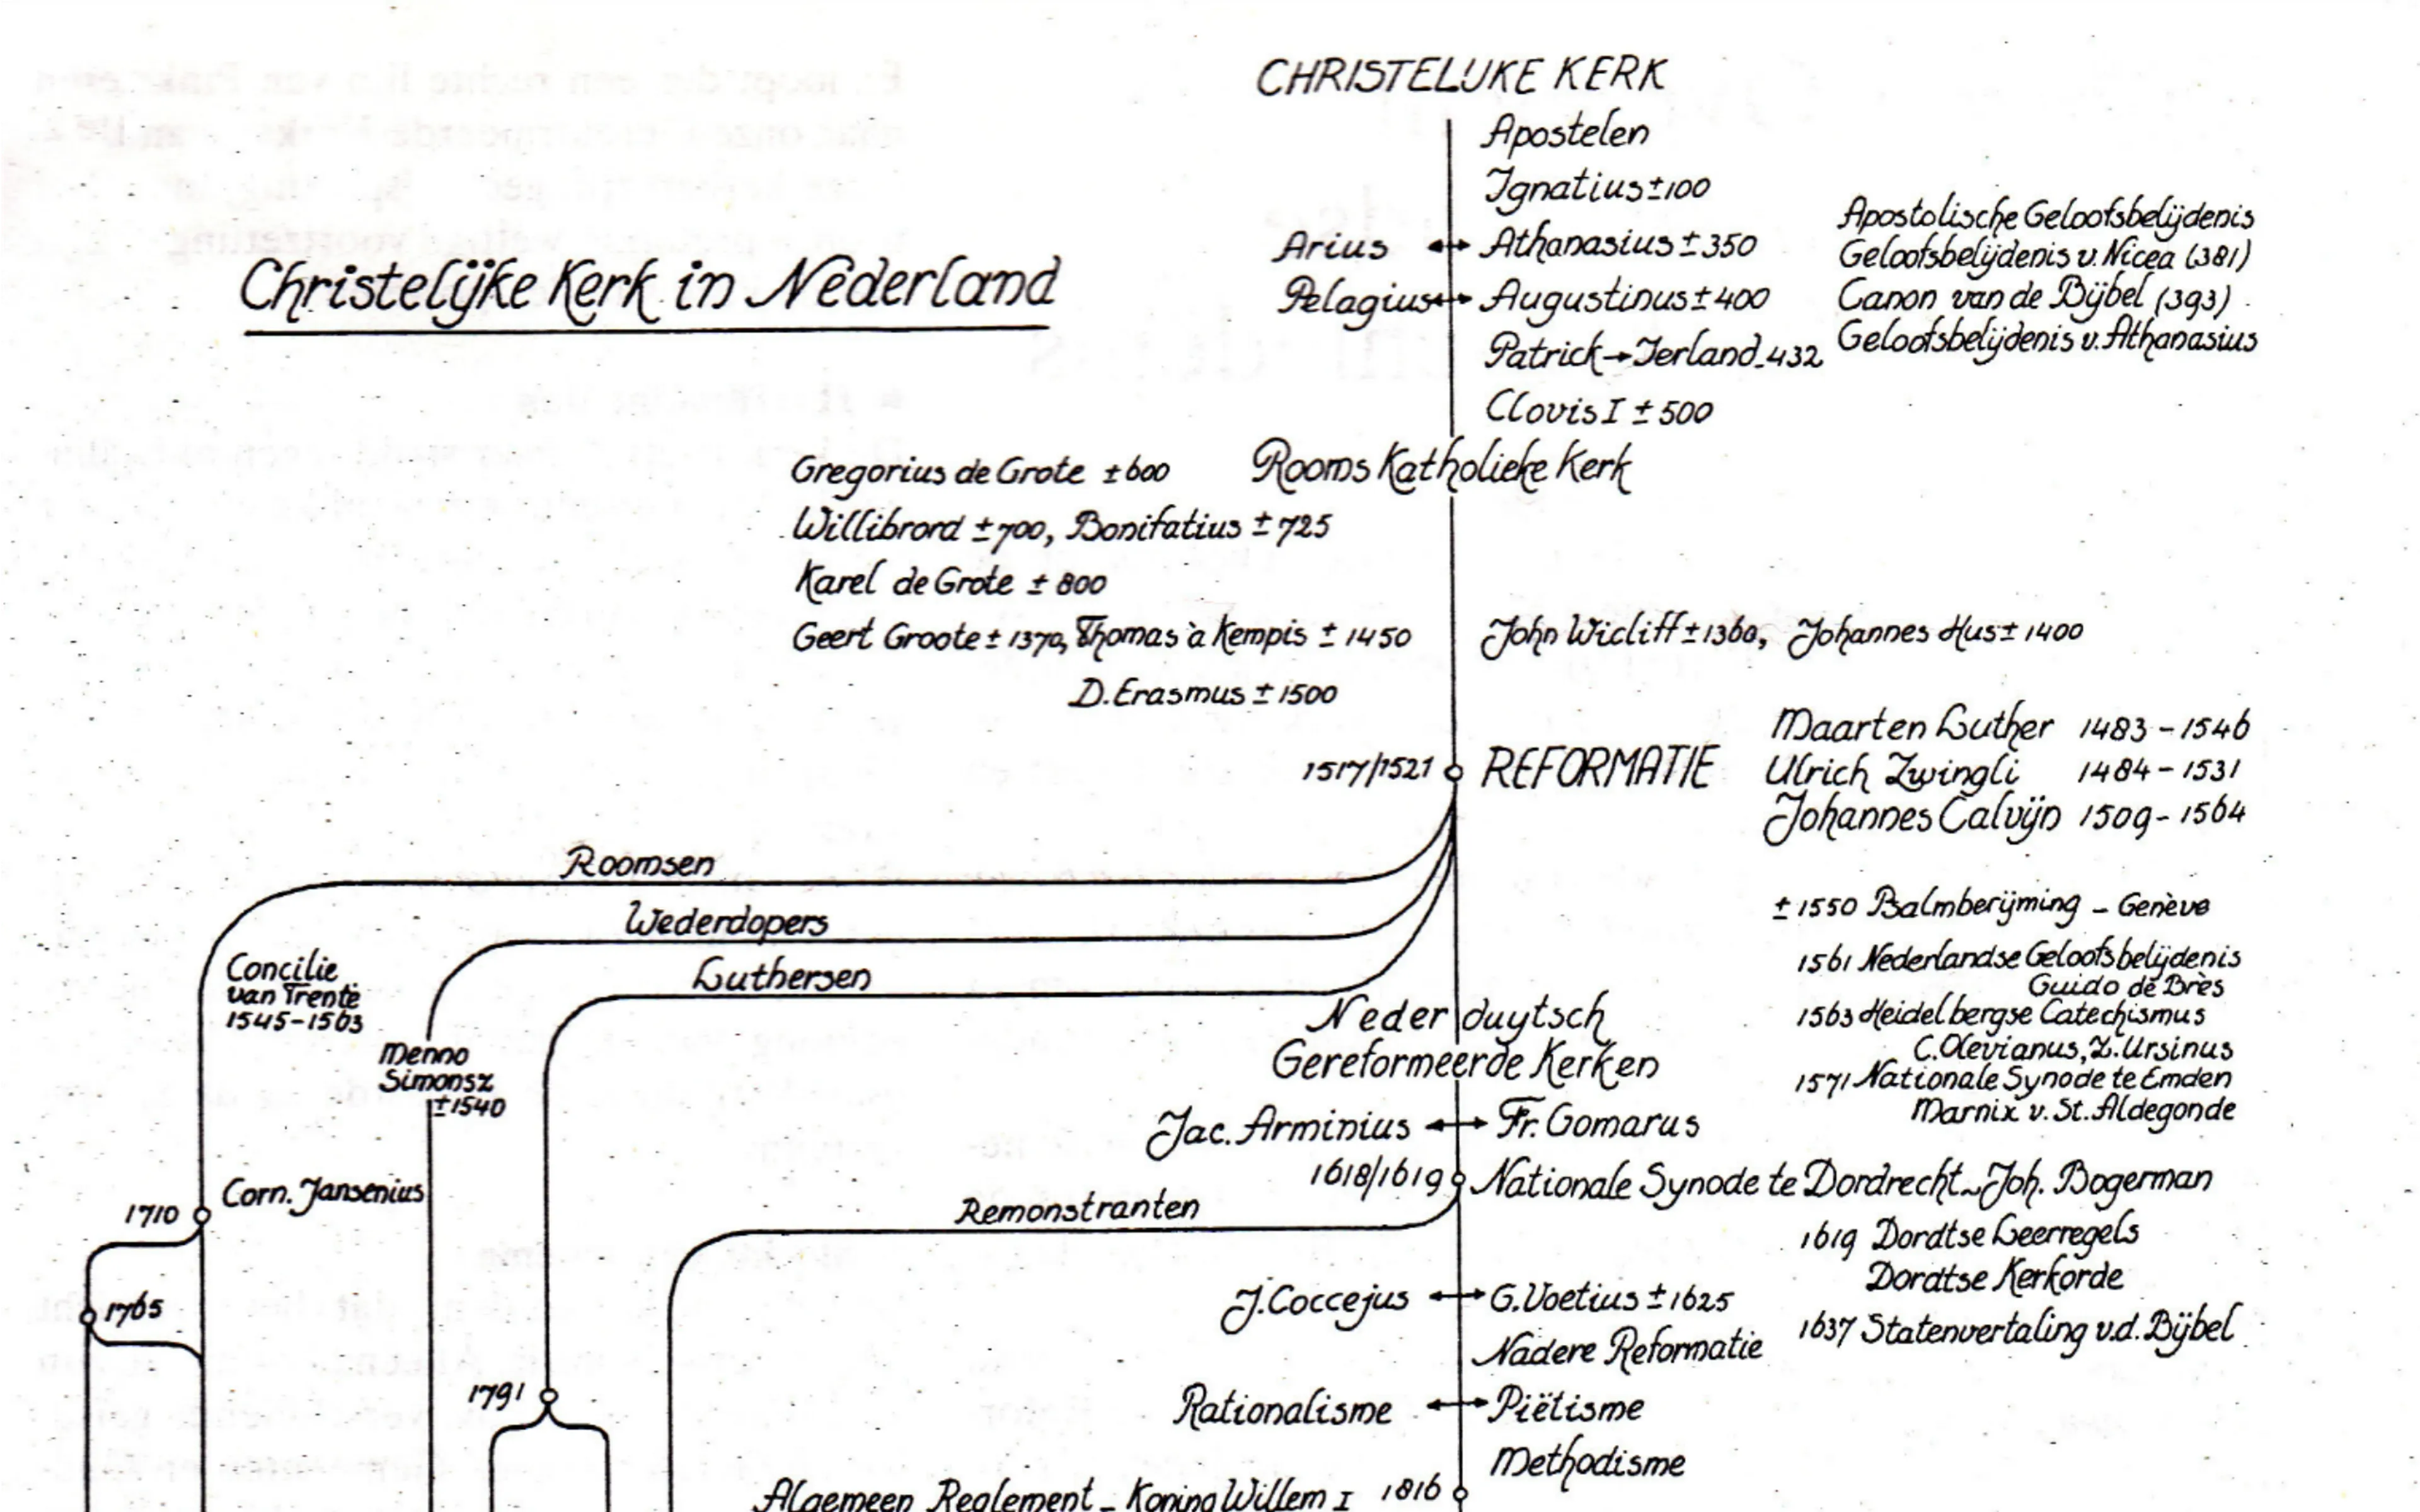 CHRISTELIJKE KERK
Apostelen
Ignatius ± 100
Arius ↔ Athanasius ± 350
Pelagius ↔ Augustinus ± 400
Patrick → Ierland - 432
Clovis I ± 500
Apostolische Geloofsbelijdenis
Geloofsbelijdenis v. Nicea (381)
Canon van de Bijbel (393)
Geloofsbelijdenis v. Athanasius
Christelijke Kerk in Nederland
Rooms Katholieke Kerk
Gregorius de Grote ± 600
Willibrord ± 700, Bonifatius ± 725
Karel de Grote ± 800
Geert Groote ± 1370, Thomas à Kempis ± 1450
D. Erasmus ± 1500
John Wicliff ± 1360, Johannes Hus ± 1400
1517/1521 REFORMATIE
Maarten Luther 1483 - 1546
Ulrich Zwingli 1484 - 1531
Johannes Calvijn 1509 - 1564
Roomsen
Wederdopers
Luthersen
± 1550 Psalmberijming - Genève
1561 Nederlandse Geloofsbelijdenis
Guido de Brès
1563 Heidelbergse Catechismus
C. Olevianus, Z. Ursinus
1571 Nationale Synode te Emden
Marnix v. St. Aldegonde
Concilie
van Trente
1545-1563
Menno
Simonsz
± 1540
Nederduytsch
Gereformeerde Kerken
Jac. Arminius ↔ Fr. Gomarus
1618/1619 Nationale Synode te Dordrecht - Joh. Bogerman
1710 Corn. Jansenius
Remonstranten
1619 Dordtse Leerregels
Dordtse Kerkorde
1765
J. Coccejus ↔ G. Voetius ± 1625
1637 Statenvertaling v.d. Bijbel
Nadere Reformatie
1791
Rationalisme ↔ Piëtisme
Methodisme
Algemeen Reglement - Koning Willem I 1816